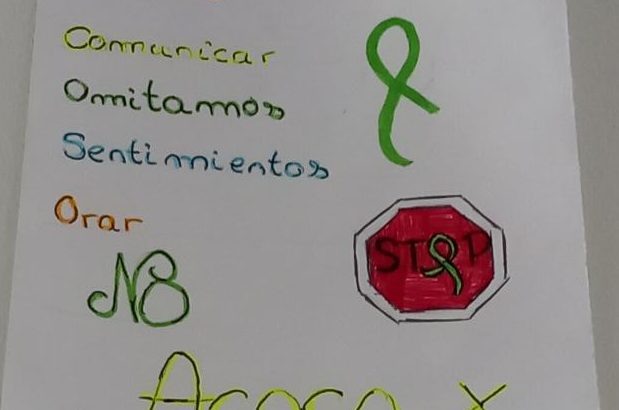 Comunicar
Omitamos
Sentimientos
Orar
STOP
NB